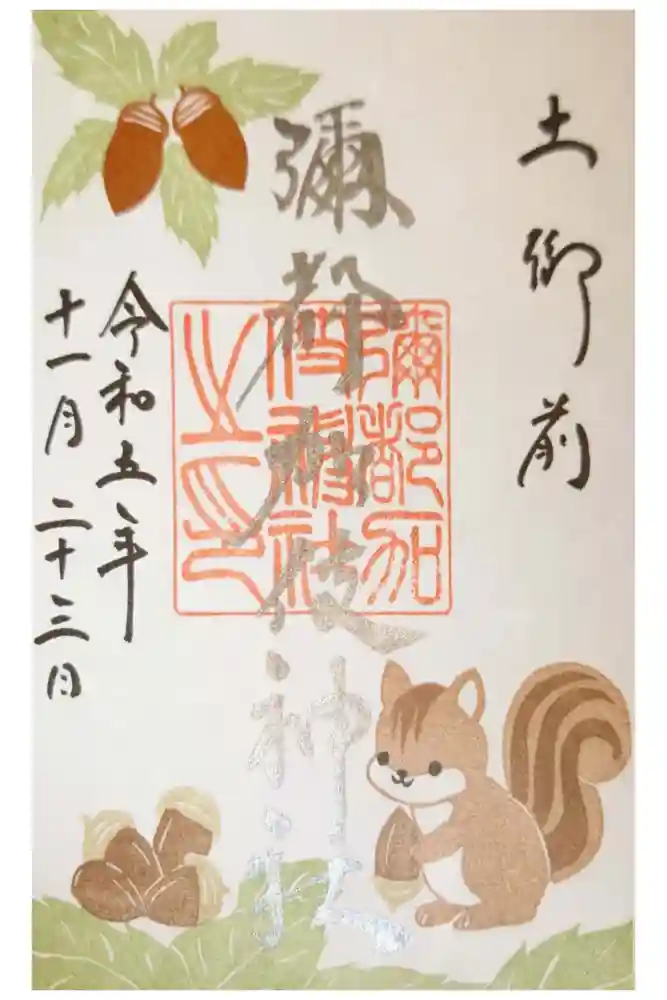 土御前
彌都加伎神社
彌都加
伎神社
之印
令和五年
十一月二十三日